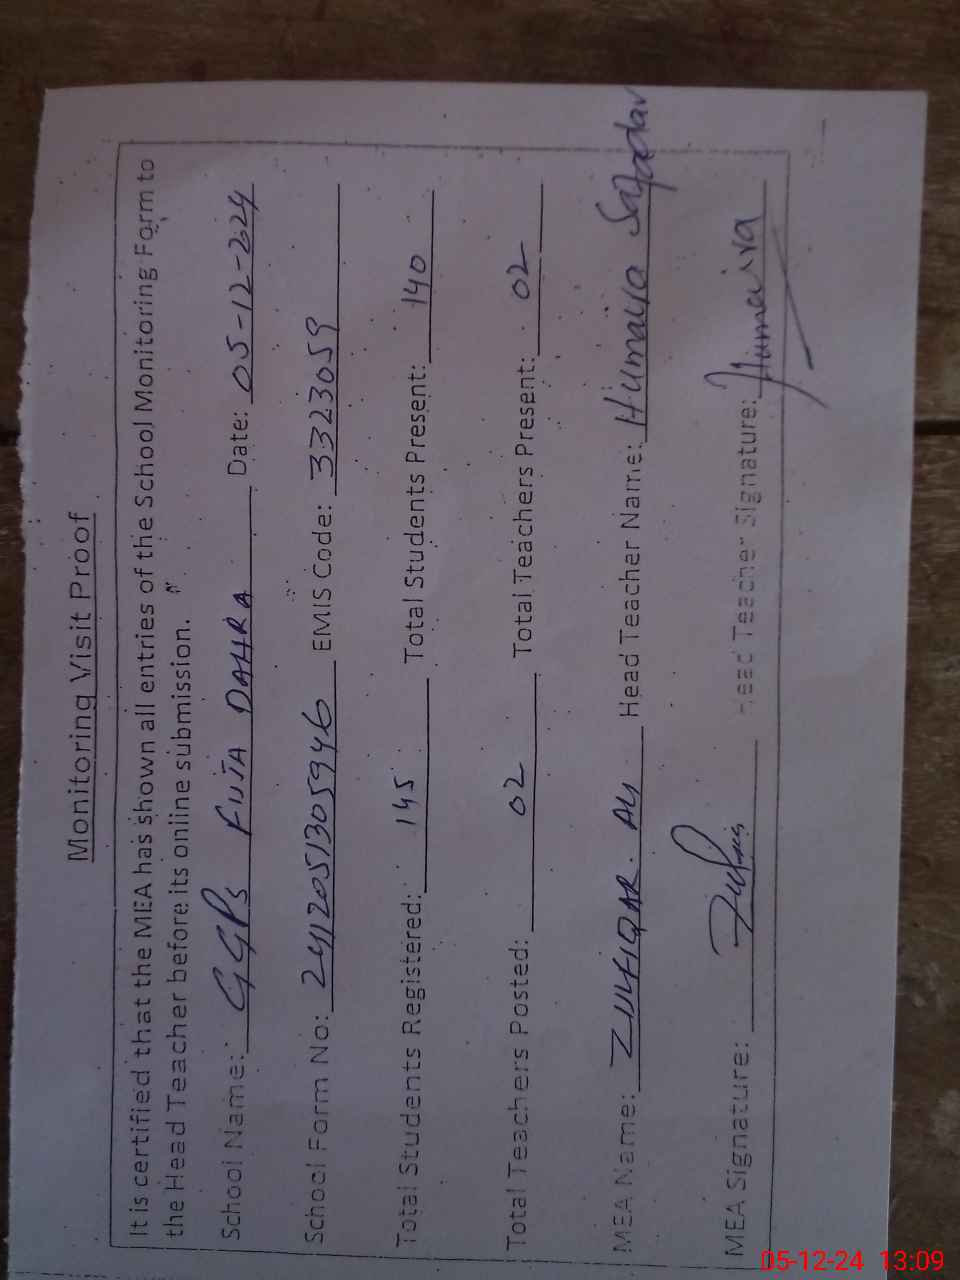 Monitoring Visit Proof
It is certified that the MEA has shown all entries of the School Monitoring Form to
the Head Teacher before its online submission.
School Name: GGPS FUJA DAHRA Date: 05-12-224
School Form No: 2412051305946 EMIS Code: 3323059
Total Students Registered: 145 Total Students Present: 140
Total Teachers Posted: 02 Total Teachers Present: 02
MEA Name: ZULFIQAR ALI Head Teacher Name: Humaira
MEA Signature: Head Teacher Signature: Humaira
05-12-24 13:09